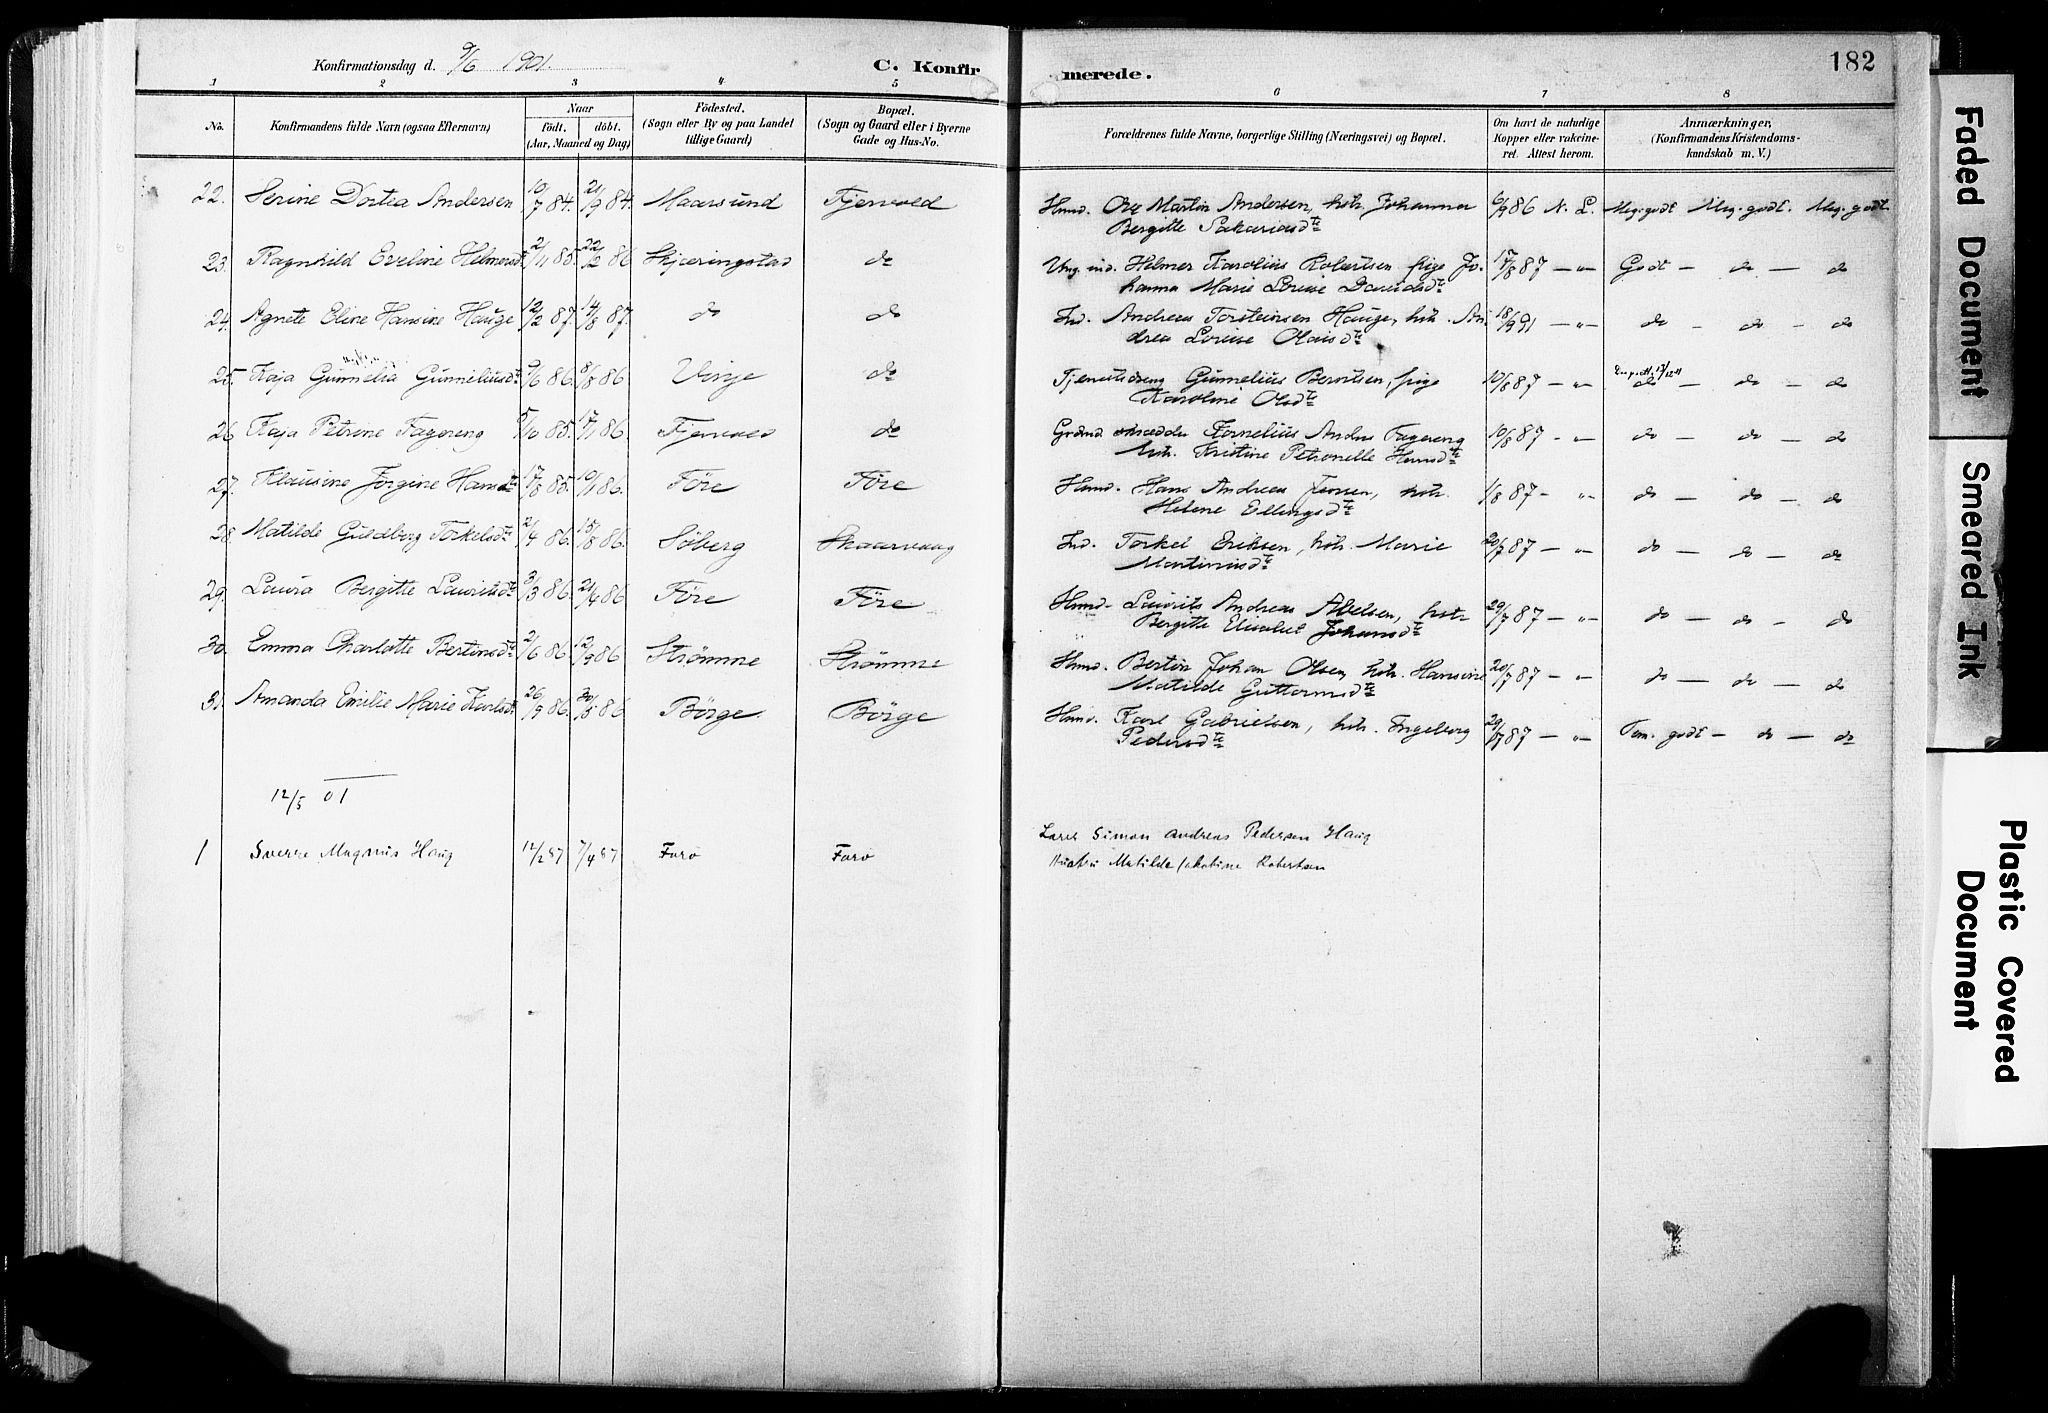 Konfirmationsdag d. 9/6 1901.
C. Konfir
merede.
182
1 2 3 4 5 6 7 8
No.
Konfirmandens fulde Navn (ogsaa Efternavn)
Naar
født. døbt.
(Aar, Maaned og Dag)
Fødested.
(Sogn eller By og paa Landet
tillige Gaard)
Bopæl.
(Sogn og Gaard eller i Byerne
Gade og Hus-No.
Forældrenes fulde Navne, borgerlige Stilling (Næringsvei) og Bopæl.
Om havt de naturlige
Kopper eller vakcine-
ret. Attest herom.
Anmærkninger,
(Konfirmandens Kristendoms-
kundskab m. V.)
22. Serine Dortea Andersen 10/7 84. 21/9 84. Maarsund Fjærvold Hmd. Ove Martin Andersen, hstr. Johanna 6/9 86 N. L. Meg. godt Meg. godt. Meg. godt
Bergitte Sakariasdtr
23. Ragnhild Eveline Helmersdtr 2/11 85. 22/2 86 Skjæringstad do Ung. ind. Helmer Karolius Robertsen pige Jo- 17/8 87 — „ — Godt — do — do
hanna Marie Lovise Davidsdtr
24. Agnete Eline Hansine Hauge 12/2 87. 14/8 87. do do Ind. Andreas Torsteinsen Hauge, hstr. An- 18/9 91 — „ — do — do — do
drea Lovise Olaisdtr
25. Kaja Gunnelia Gunneliusdtr 5/6 86. 8/8 86 Vinje do Tjenestedreng Gunnelius Berntsen, pige 10/8 87 — „ — do — do — do
Karoline Olsdtr
26 Kaja Petrine Fagereng 5/10 85. 17/1 86. Fjærvold do Grdmd. skrædder Kornelius Andr. Fagereng 10/8 87 — „ — do — do — do
hstr. Kristine Petronelle Hansdtr
27. Klausine Jørgine Hansdtr 17/8 85. 10/1 86. Føre Føre Hmd. Hans Andreas Jensen, hstr. 1/8 87 — „ — do — do — do
Helene Ellingsdtr
28. Matilde Guldborg Torkelsdtr 2/4 86. 15/8 86. Søberg Skaarvaag Ind. Torkel Eriksen, hstr. Marie 20/7 87 — „ — do — do — do
Martinusdtr
29. Laura Bergitte Lauritsdtr 3/3 86. 21/4 86 Føre Føre Hmd. Laurits Andreas Abelsen, hstr 29/7 87 — „ — do — do — do
Bergitte Elisabet Johansdtr
30. Emma Charlotte Bertinsdtr 2/6 86. 12/9 86 Strømme Strømme Hmd. Bertin Johan Olsen, hstr. Hansine 20/7 87 — „ — do — do — do
Matilde Guttormsdtr
31. Amanda Emilie Marie Karlsdtr 26/9 86. 30/5 86 Børge Børge Hmd. Karl Gabrielsen, hstr. Ingeborg 29/7 87 — „ — Tem. godt — do — do
Pedersdtr
12/5 01
1 Sverre Magnus Haug 12/2 87 7/4 87 Forø Forø Lærer Simon Andreas Pedersen Haug
Hustru Matilde Jakobine Robertsen
Faded Document
Smeared Ink
Plastic Covered
Document